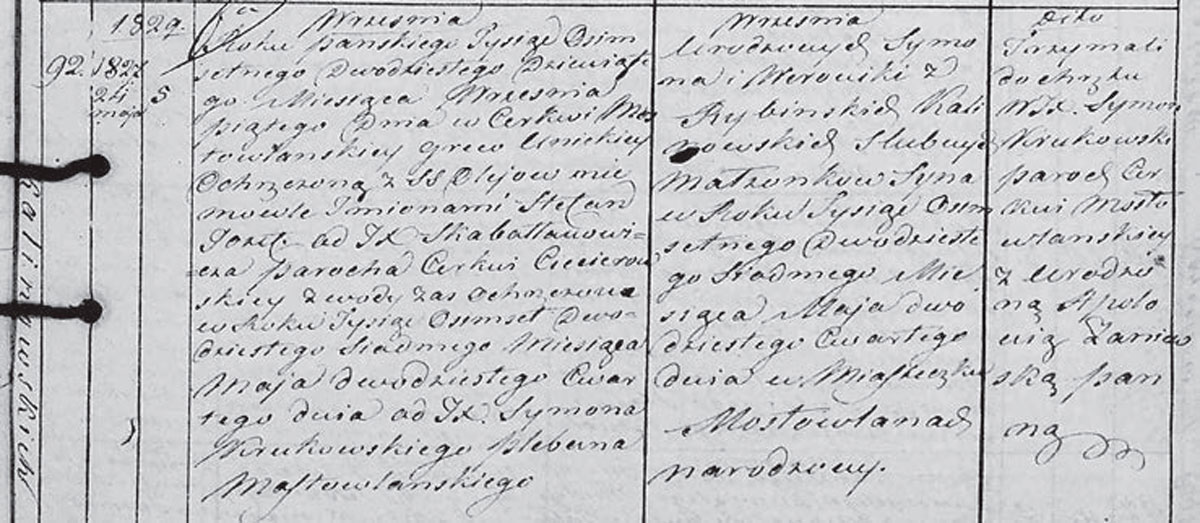 1829.
92. 1827
24 5
maja
Kalinowskich
Września
Roku pańskiego Tysiąc Osim
setnego Dwodziestego Dziewiąte
go Miesiąca Września
piątego Dnia w Cerkwi Mos
towlanskiey greco Unickiey
Ochrzczony z SS Olejow nie
mowle Imionami Stefan
Jozef od JX Skabałłanowi=
=cza parocha Cerkwi Ciecierow
skiey z wody zas Ochrzczone
w Roku Tysiąc Osimset Dwo=
dziestego Siodmego Miesiąca
Maja dwodziestego Czwar
tego dnia od JX. Symona
Krukowskiego plebana
Mastowlanskiego
Września
Urodzonych Symo
na i Weroniki z
Rybinskich Kali
nowskich Slubnych
Małzonkow Syna
w Roku Tysiąc Osim
setnego Dwodzieste
go Siodmego Mie
siąca Maja dwo
dziestego Czwartego
dnia w Miasteczku
Mostowlanach
narodzony.
dito
Trzymali
do chrztu
WJX. Symon
Krukowski
paroch Cer
kwi Mosto
wlanskiey
z Urodzo
ną Apolo
nią Zaniew
ską pan
ną